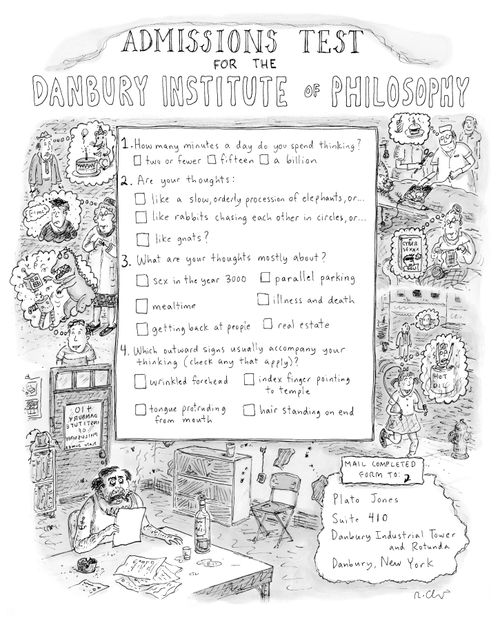 ADMISSIONS TEST
FOR THE
DANBURY INSTITUTE OF PHILOSOPHY
1. How many minutes a day do you spend thinking?
two or fewer fifteen a billion
2. Are your thoughts:
like a slow, orderly procession of elephants, or...
like rabbits chasing each other in circles, or...
like gnats?
3. What are your thoughts mostly about?
sex in the year 3000 parallel parking
mealtime illness and death
getting back at people real estate
4. Which outward signs usually accompany your
thinking (check any that apply)?
wrinkled forehead index finger pointing
to temple
tongue protruding hair standing on end
from mouth
CYBER
HOT
OIL
410
MAIL COMPLETED
FORM TO:
Plato Jones
Suite 410
Danbury Industrial Tower
and Rotunda
Danbury, New York
R. Chast